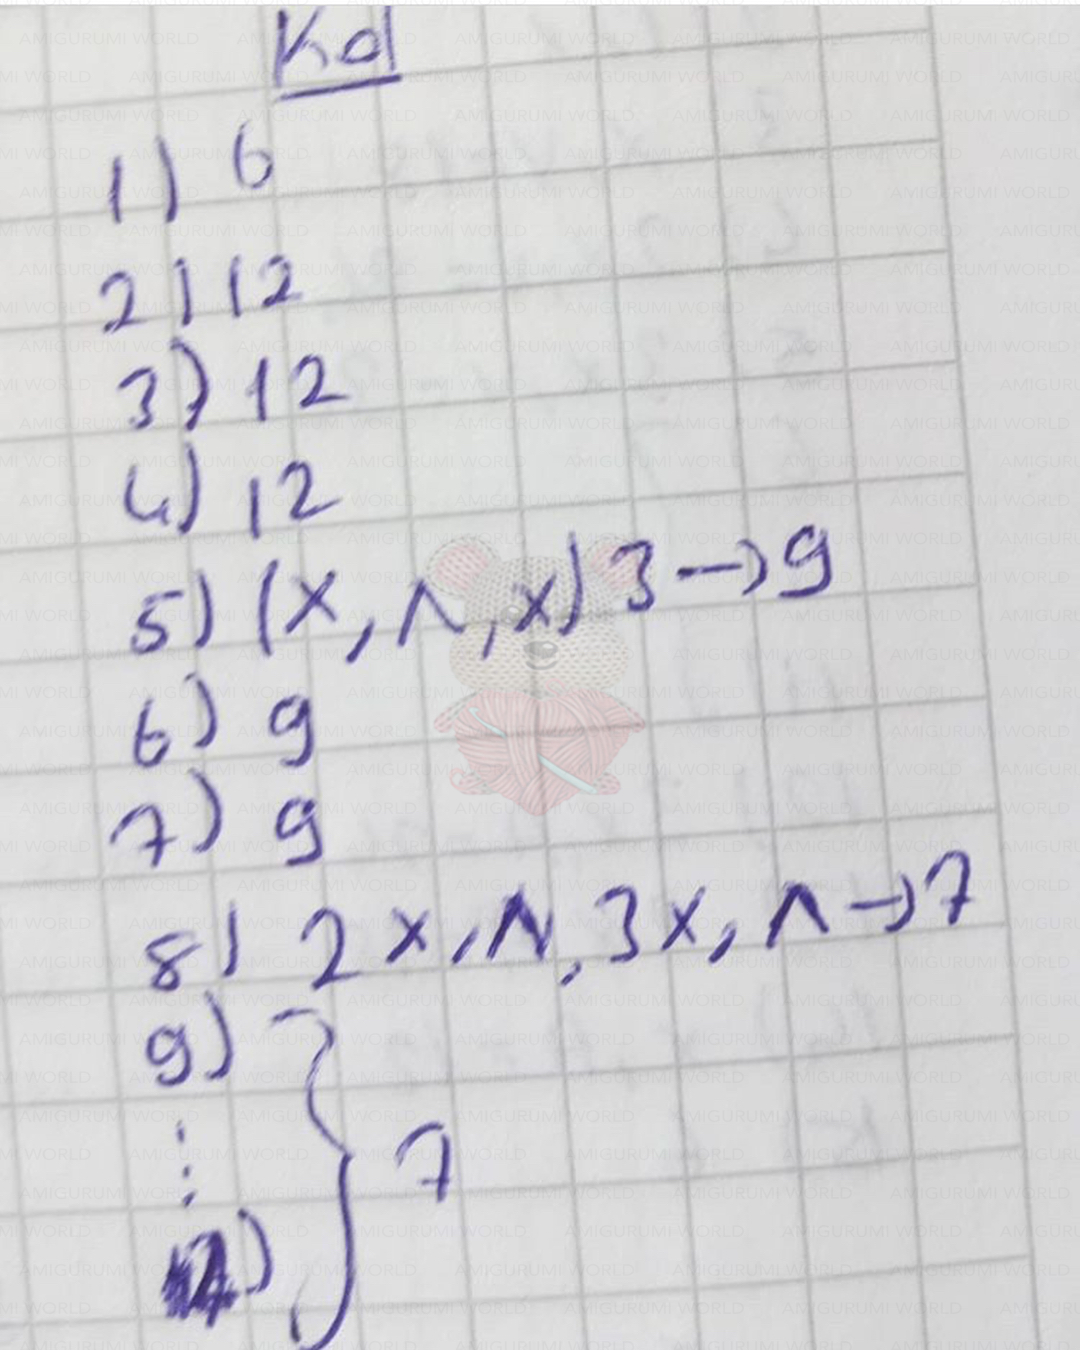 Kol
1) 6
2) 12
3) 12
4) 12
5) (x, ʌ, x) 3 → 9
6) 9
7) 9
8) 2x, ʌ, 3x, ʌ → 7
9) } 7
⋮
)
AMIGURUMI WORLD